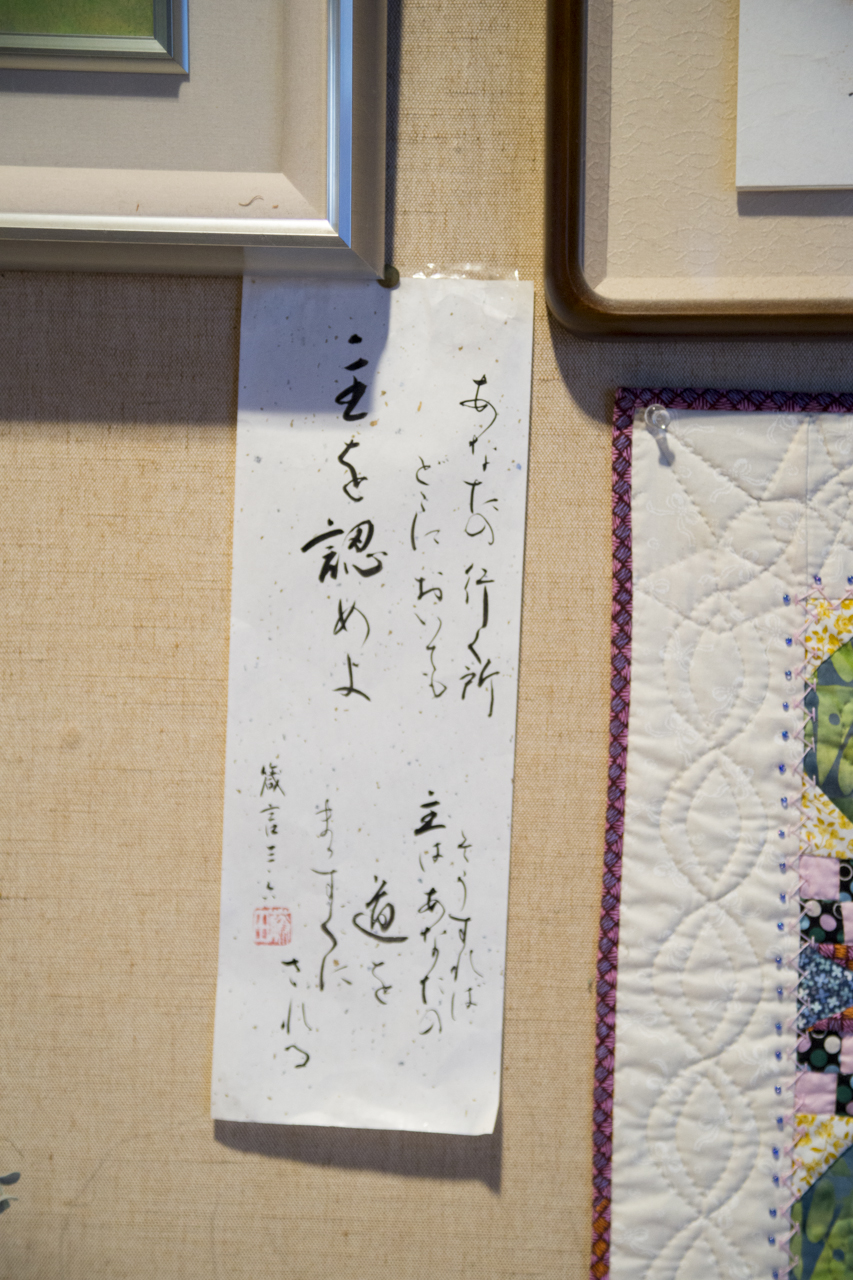 あなたの行く所
どこにおいても
主を認めよ
そうすれば
主はあなたの
道を
まっすぐに
される
箴言三・六